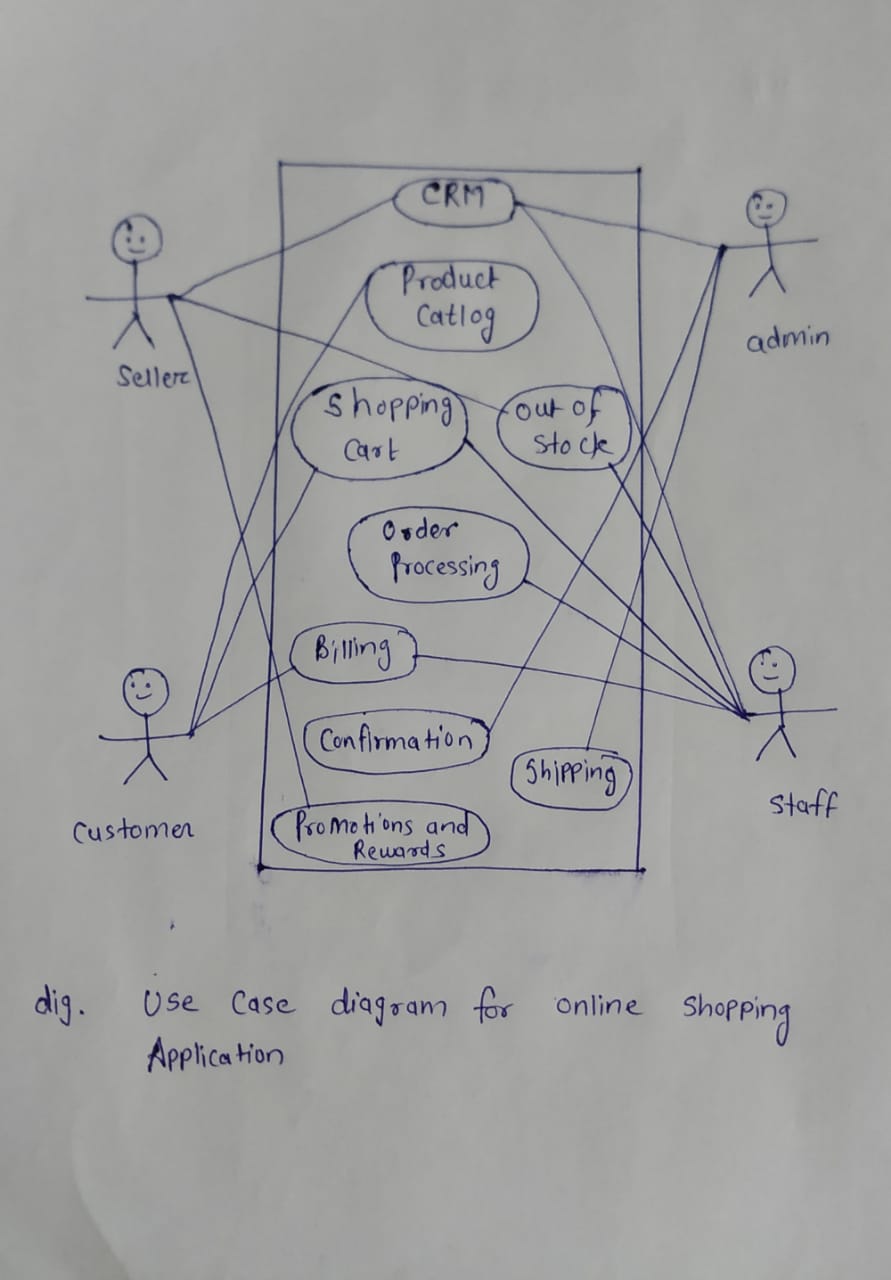 CRM
Product
Catlog
Seller
admin
Shopping
Cart
out of
Stock
Order
Processing
Billing
Confirmation
Shipping
Customer
Staff
Promotions and
Rewards
dig. Use Case diagram for online shopping
Application